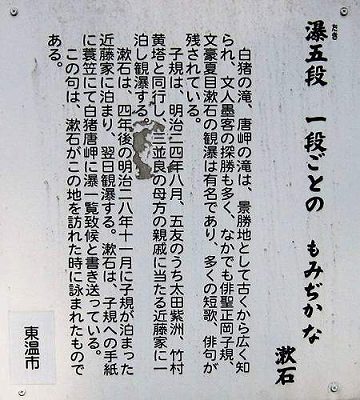 瀑五段 一段ごとの もみぢかな
たき だん
漱石
白猪の滝、唐岬の滝は、景勝地として古くから広く知
られ、文人墨客の探勝も多く、なかでも俳聖正岡子規、
文豪夏目漱石の観瀑は有名であり、多くの短歌、俳句が
残されている。
子規は、明治二四年八月、五友のうち太田紫洲、竹村
黄塔と同行し、三並良の母方の親戚に当たる近藤家に一
泊し観瀑する。
漱石は、四年後の明治二八年十一月に子規が泊まった
近藤家に泊まり、翌日観瀑する。漱石は、子規への手紙
に蓑笠にて白猪唐岬に瀑一覧致候と書き送っている。
この句は、漱石がこの地を訪れた時に詠まれたもので
ある。
東温市